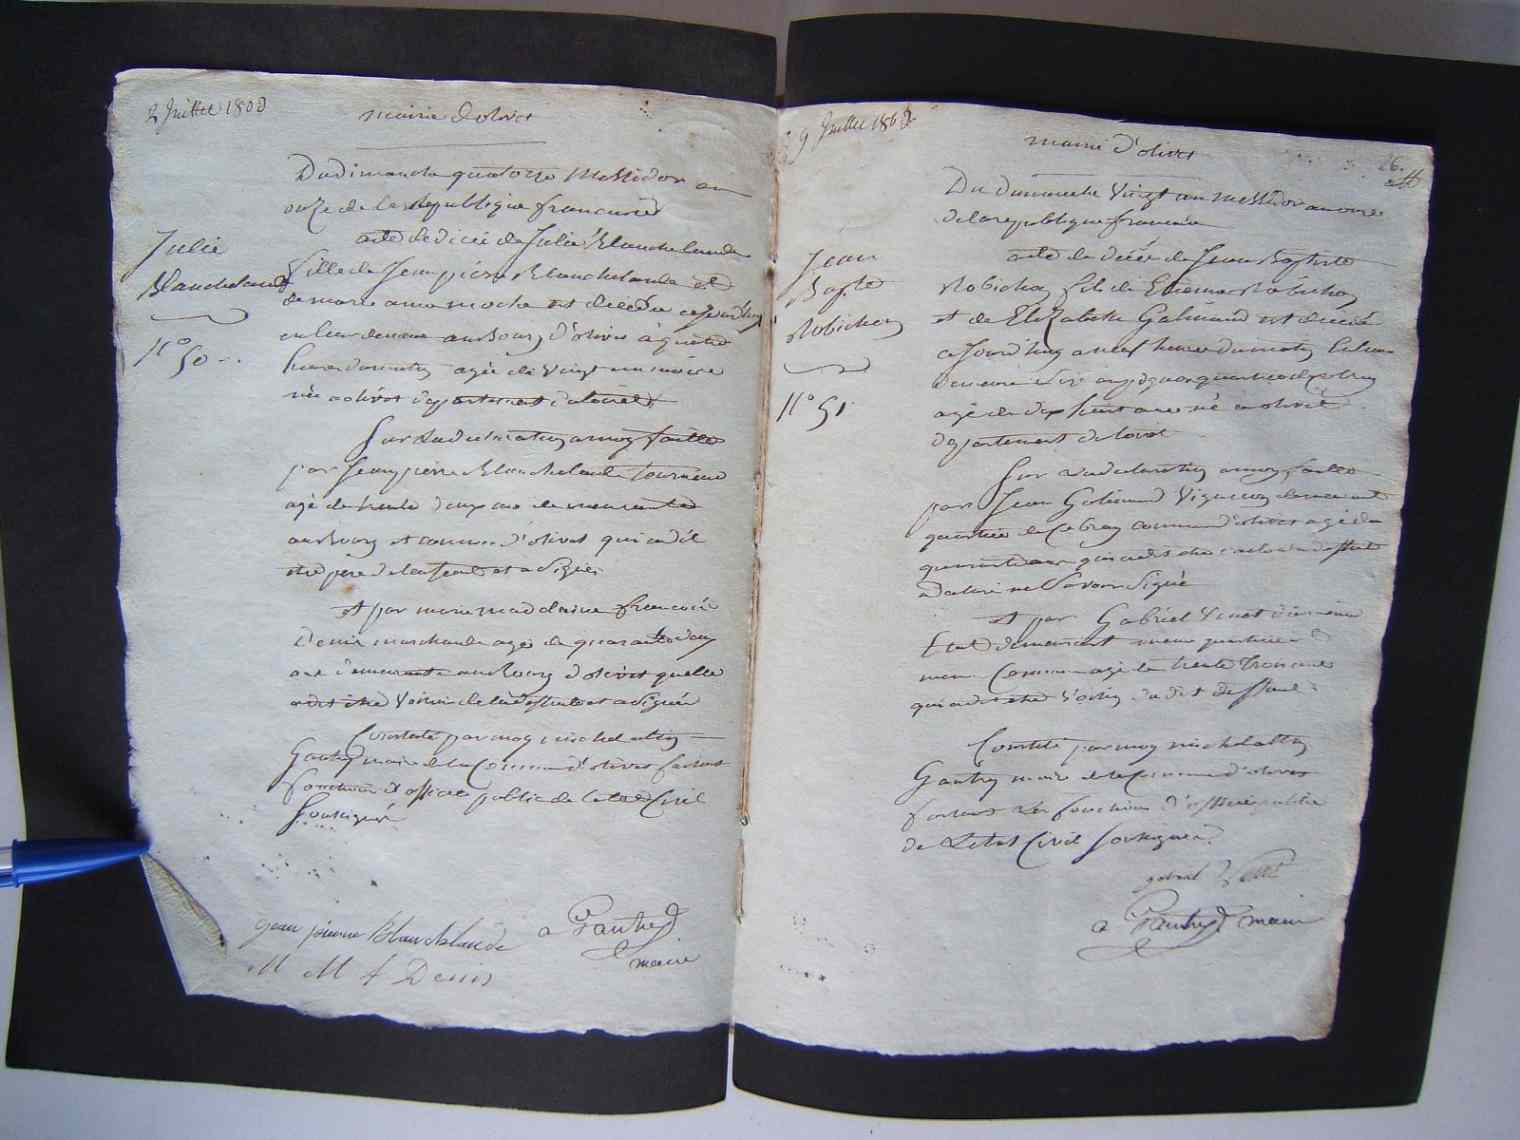 2 Juillet 1803
mairie d'olivet
Du dimanche quatorze Messidor an
onze de la republique francaise
acte de décés de Julie Blanchelande
Julie
Blanchelande
N° 50
fille de Jean pierre Blanchelande et
de marie anne est decedée cejourd'huy
au bourg d'olivet à quatre
heures du matin agée de vingt
née a olivet departement du loiret
Sur la declaration a moy faitte
par Jean pierre Blanchelande
agé de trente deux ans demeurant
au bourg et commune d'olivet qui a dit
etre pere de la ditte et a signé
et par marie madelaine francoise
Denis marchande agé de quarante deux
ans demeurante au bourg d'olivet quelle
a dit etre voisine de la deffunte et a signée
Constaté par moy michel
Gautry maire de la Commune d'olivet faisant
fonction d'officier public de l'etat Civil
Soussigné
jean pierre Blanchelande
a Gautry
maire
M M f Denis
9 Juillet 1803
mairie d'olivet
26.
Du dimanche vingt un messidor an onze
de la republique francaise
acte de décés de Jean Baptiste
Jean
Bapte
Robichon
N° 51
Robichon fils de Etienne Robichon
et de Elizabethe Galinand est decedé
cejourd'huy a neuf heures du matin
agé de dix huit ans né a olivet
departement du loiret
Sur la declaration a moy faitte
par Jean Galinand Vigneron demeurant
quartier de commune d'olivet agé de
quarante ans qui a dit etre du deffunt
a declaré ne savoir signé
et par Gabriel de même
Etat demeurant meme quartier
meme Commune agé de trente trois ans
qui a dit etre voisin du dit deffunt
Constaté par moy michel
Gautry maire de la Commune d'olivet
faisant les fonctions d'officier public
de L'etat Civil soussigné
gabriel
a Gautry maire